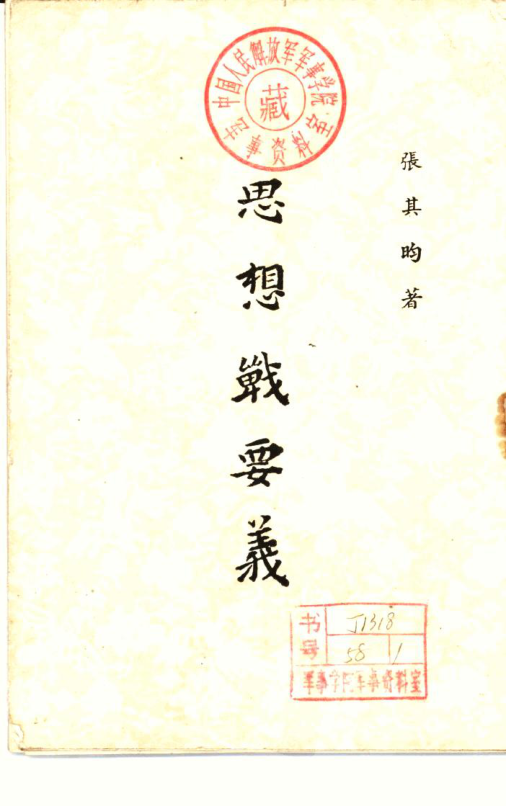 中国人民解放军军事学院
藏
军事资料室
張其昀著
思想戰要義
书号
J1318
58 1
军事学院军事资料室